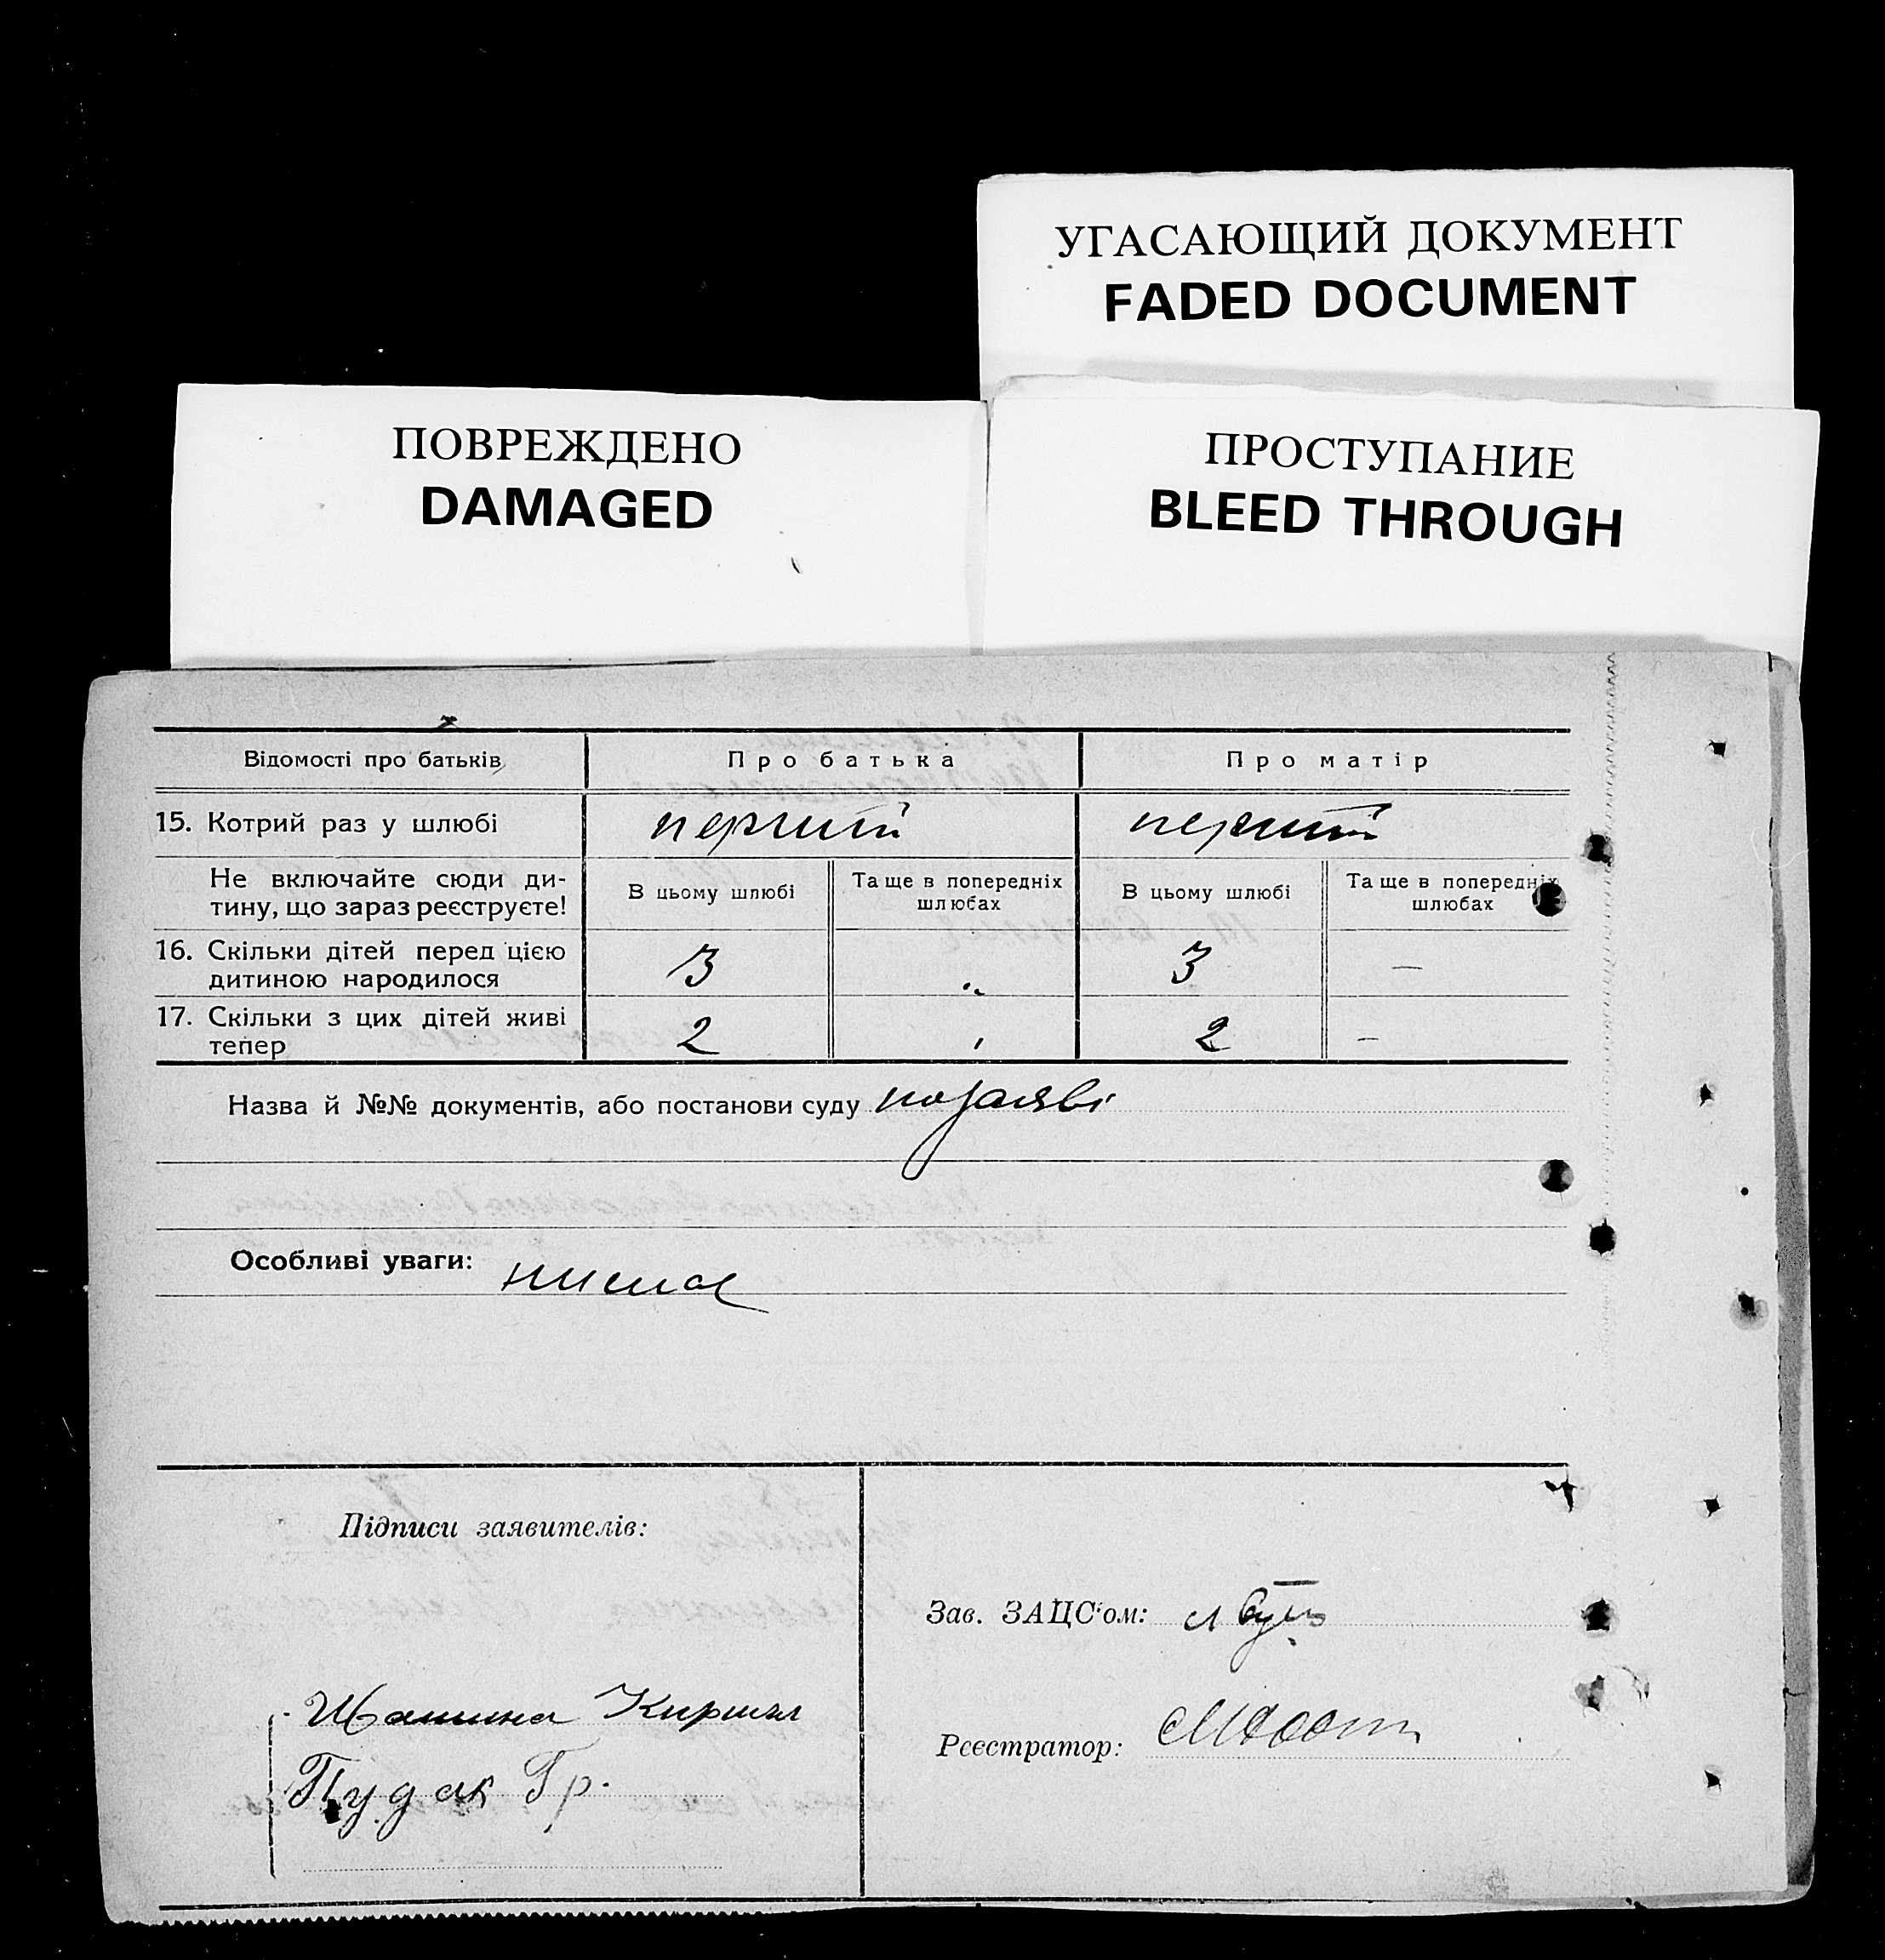 УГАСАЮЩИЙ ДОКУМЕНТ
FADED DOCUMENT
ПОВРЕЖДЕНО
DAMAGED
ПРОСТУПАНИЕ
BLEED THROUGH
Відомості про батьків Про батька Про матір
15. Котрий раз у шлюбі перший перший
Не включайте сюди ди-
тину, що зараз реєструєте!
В цьому шлюбі
Та ще в попередніх
шлюбах
В цьому шлюбі
Та ще в попередніх
шлюбах
16. Скільки дітей перед цією
дитиною народилося 3 „ 3 —
17. Скільки з цих дітей живі
тепер 2 2 —
Назва й №№ документів, або постанови суду по заяві
Особливі уваги: немає
Підписи заявителів:
Кирил
Пудак Гр.
Зав. ЗАЦС'ом:
Реєстратор: